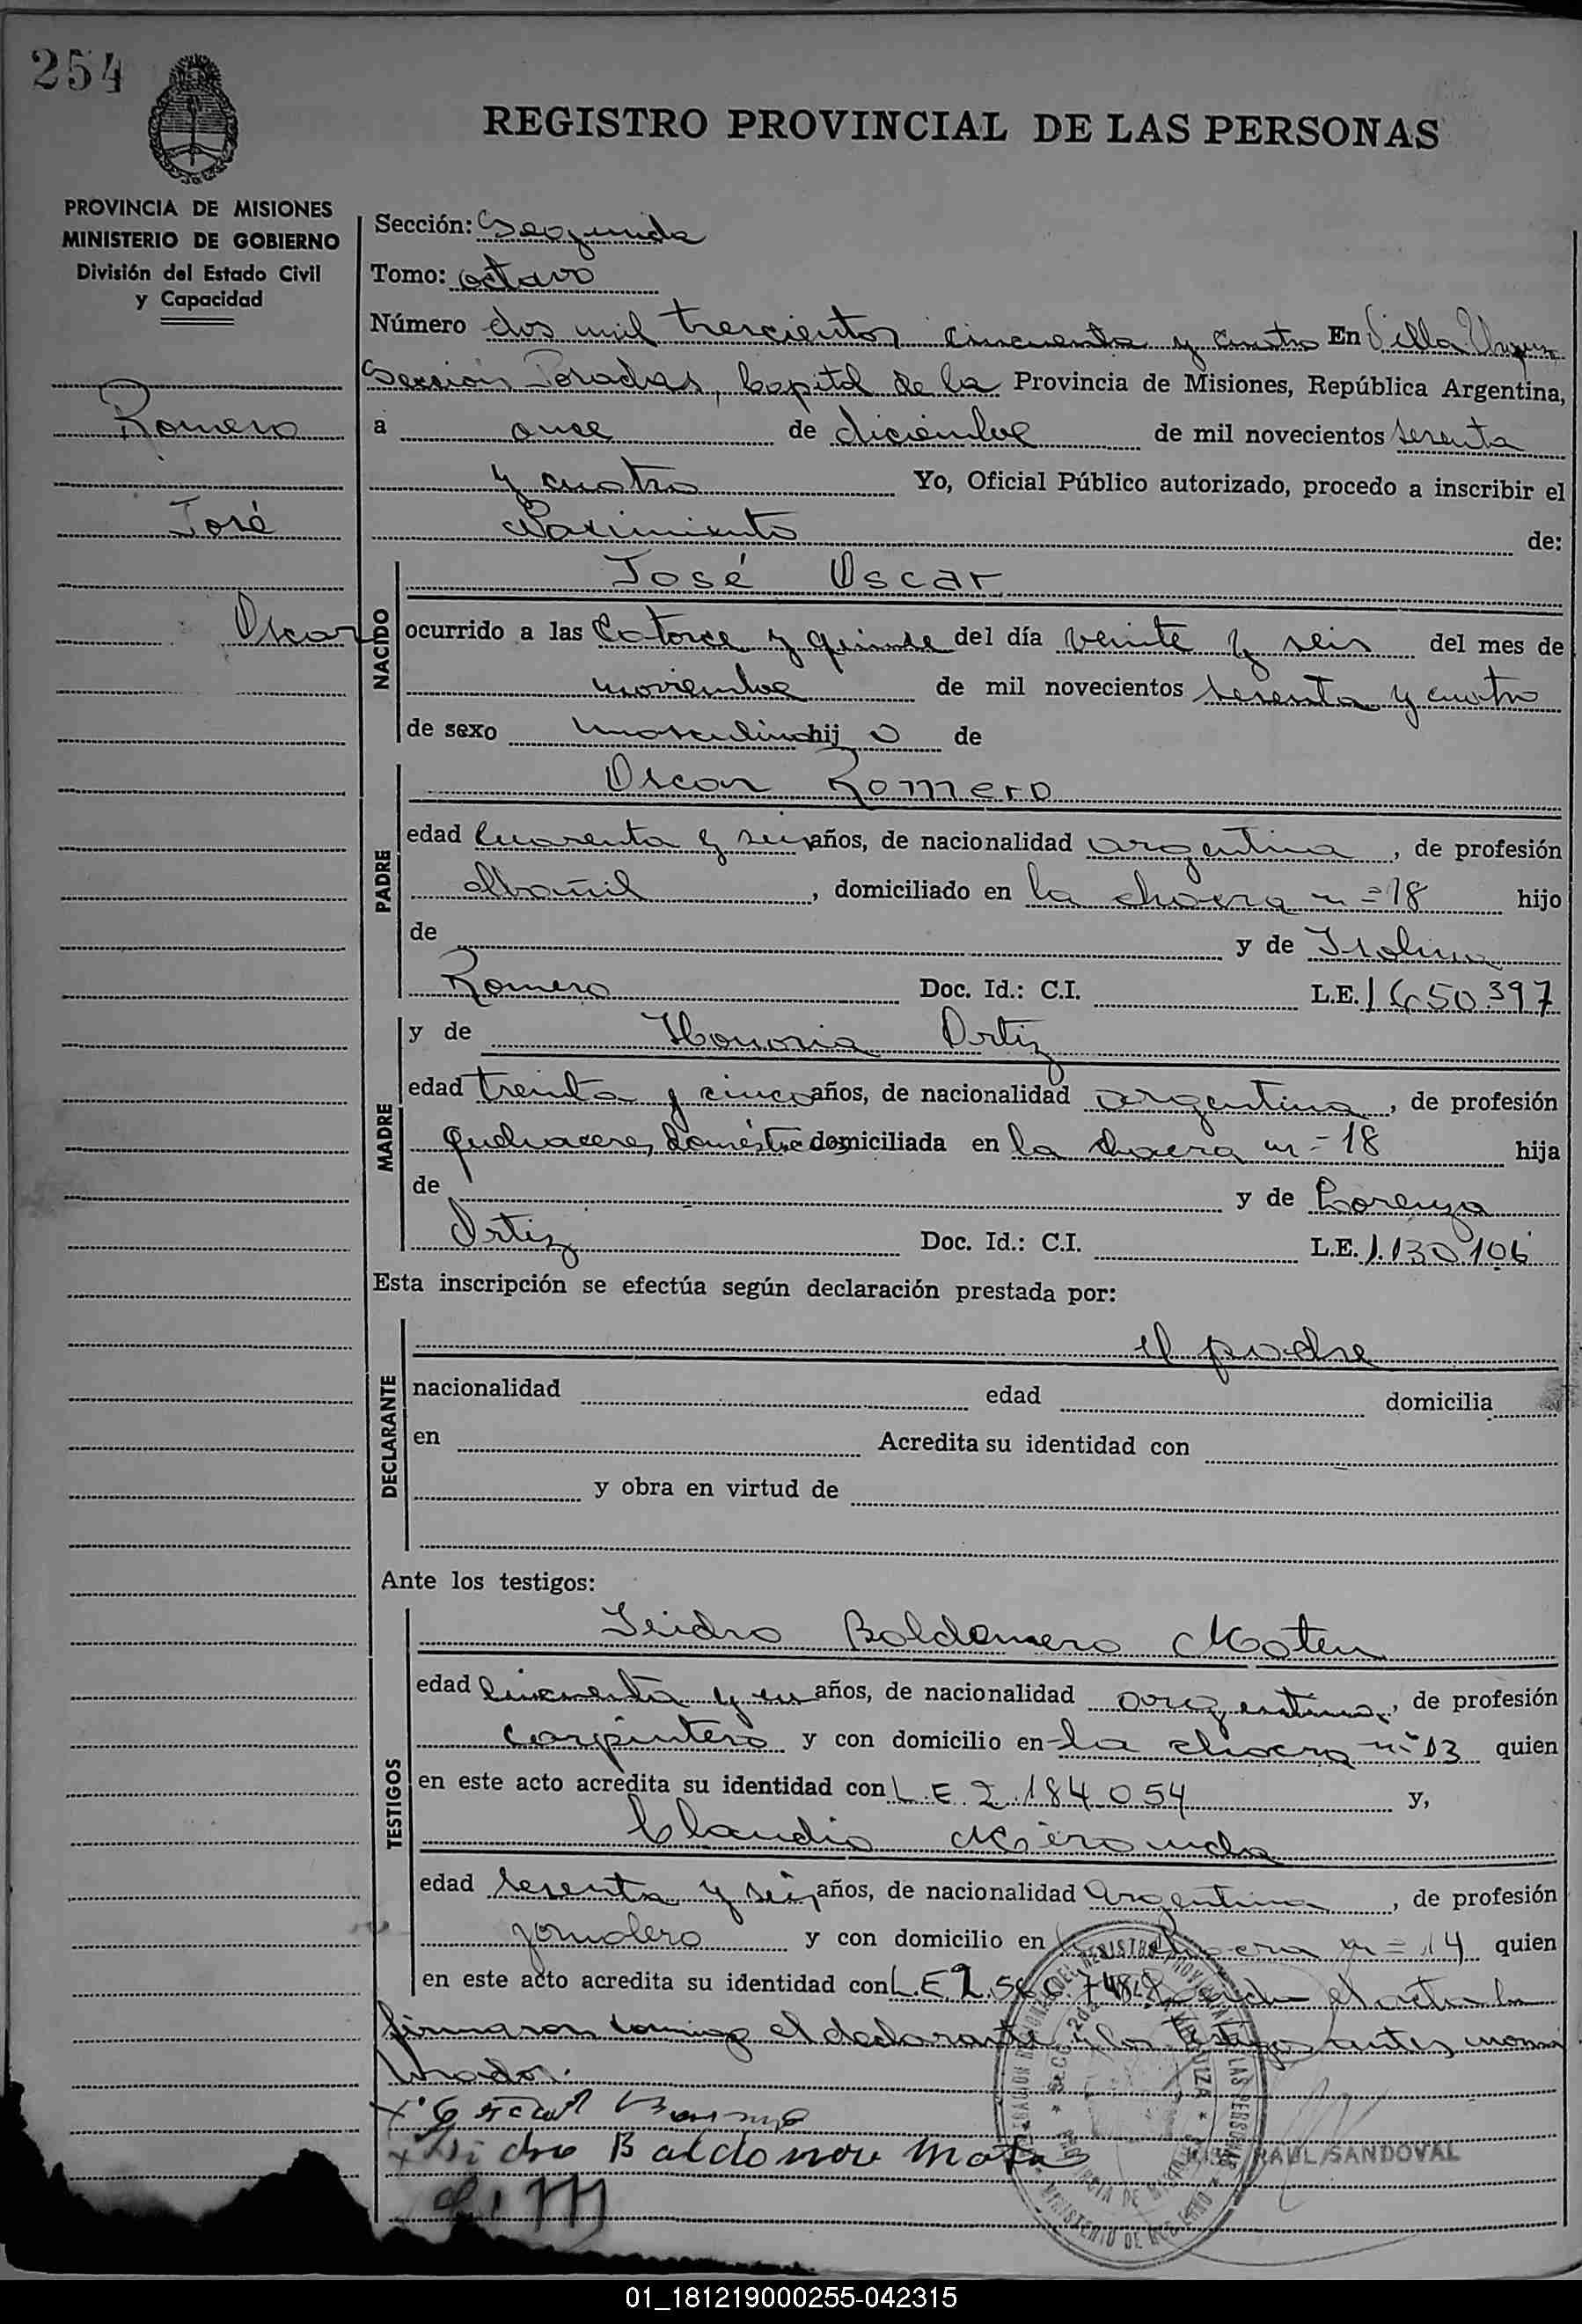 254
REGISTRO PROVINCIAL DE LAS PERSONAS
PROVINCIA DE MISIONES
MINISTERIO DE GOBIERNO
División del Estado Civil
y Capacidad
Romero
José
Oscar
Sección: Segunda
Tomo: octavo
Número dos mil trescientos cincuenta y cuatro En Villa Urquiza
Sección Posadas, Capital de la Provincia de Misiones, República Argentina,
a once de diciembre de mil novecientos sesenta
y cuatro Yo, Oficial Público autorizado, procedo a inscribir el
Nacimiento de:
NACIDO
José Oscar
ocurrido a las Catorce y quince del día veinte y seis del mes de
noviembre de mil novecientos sesenta y cuatro
de sexo masculino hijo de
PADRE
Oscar Romero
edad Cuarenta y seis años, de nacionalidad argentina, de profesión
albañil, domiciliado en la chacra n=18 hijo
de y de Isolina
Romero Doc. Id.: C.I. L.E. 1650397
MADRE
y de Honoria Ortiz
edad treinta y cinco años, de nacionalidad argentina, de profesión
Quehaceres domésticos domiciliada en la chacra n=18 hija
de y de Lorenza
Ortiz Doc. Id.: C.I. L.E. 1.130.106
Esta inscripción se efectúa según declaración prestada por:
DECLARANTE
el padre
nacionalidad edad domicilia
en Acredita su identidad con
y obra en virtud de
Ante los testigos:
TESTIGOS
Isidro Baldomero
edad Cincuenta y un años, de nacionalidad argentina, de profesión
carpintero y con domicilio en la chacra nº 13 quien
en este acto acredita su identidad con L.E. 2.184.054 y,
Claudio Miranda
edad sesenta y seis años, de nacionalidad Argentina, de profesión
jornalero y con domicilio en la chacra n=14 quien
en este acto acredita su identidad con L.E. el acta la
firmaron conmigo el declarante y los testigos antes nom
brados.
Isidro Baldomero
RAUL SANDOVAL
01_181219000255-042315